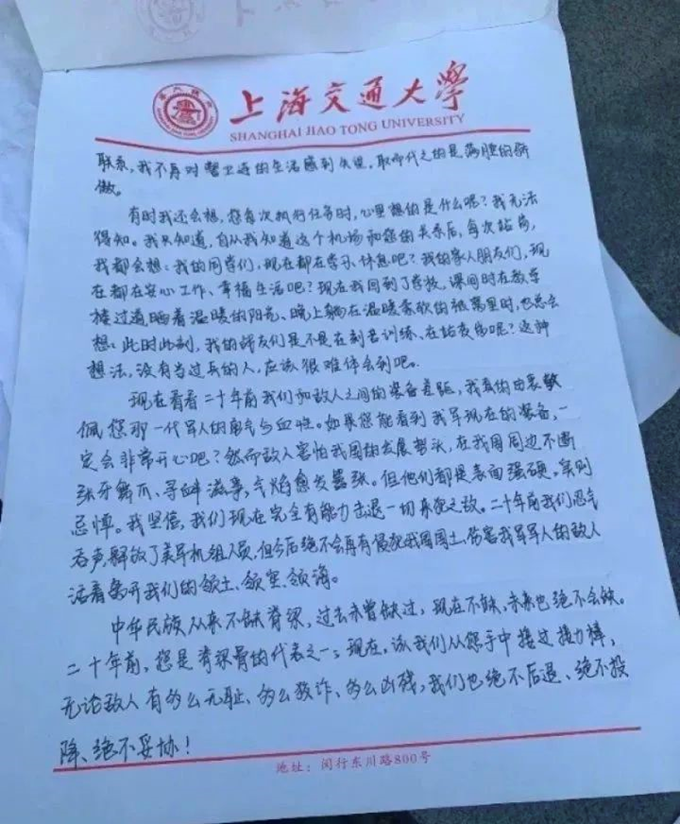 上海交通大学
SHANGHAI JIAO TONG UNIVERSITY
联系，我不再对警卫连的生活感到失望，取而代之的是满腔的骄
傲。
有时我还会想，您每次执行任务时，心里想的是什么呢？我无法
得知。我只知道，自从我知道这个机场和您的关系后，每次站岗，
我都会想：我的同学们，现在都在学习、休息吧？我的家人朋友们，现
在都在安心工作、幸福生活吧？现在我回到了学校，课间时在教学
楼过道晒着温暖的阳光、晚上躺在温暖柔软的被窝里时，也总会
想：此时此刻，我的战友们是不是在刻苦训练、在站夜岗呢？这种
想法，没有当过兵的人，应该很难体会到吧。
现在看看二十年前我们和敌人之间的装备差距，我真的由衷敬
佩您那一代军人的勇气与血性。如果您能看到我军现在的装备，一
定会非常开心吧？然而敌人害怕我国的发展势头，在我国周边不断
张牙舞爪、寻衅滋事，气焰愈发嚣张。但他们都是表面强硬，实则
忌惮。我坚信，我们现在完全有能力击退一切来犯之敌。二十年前我们忍气
吞声，解放了美军机组人员，但今后绝不会再有侵犯我国国土、伤害我军军人的敌人
活着离开我们的领土、领空、领海。
中华民族从来不缺脊梁，过去未曾缺过，现在不缺，未来也绝不会缺。
二十年前，您是脊梁骨的代表之一；现在，该我们从您手中接过接力棒，
无论敌人有多么无耻、多么狡诈、多么凶残，我们也绝不后退、绝不投
降、绝不妥协！
地址：闵行东川路800号